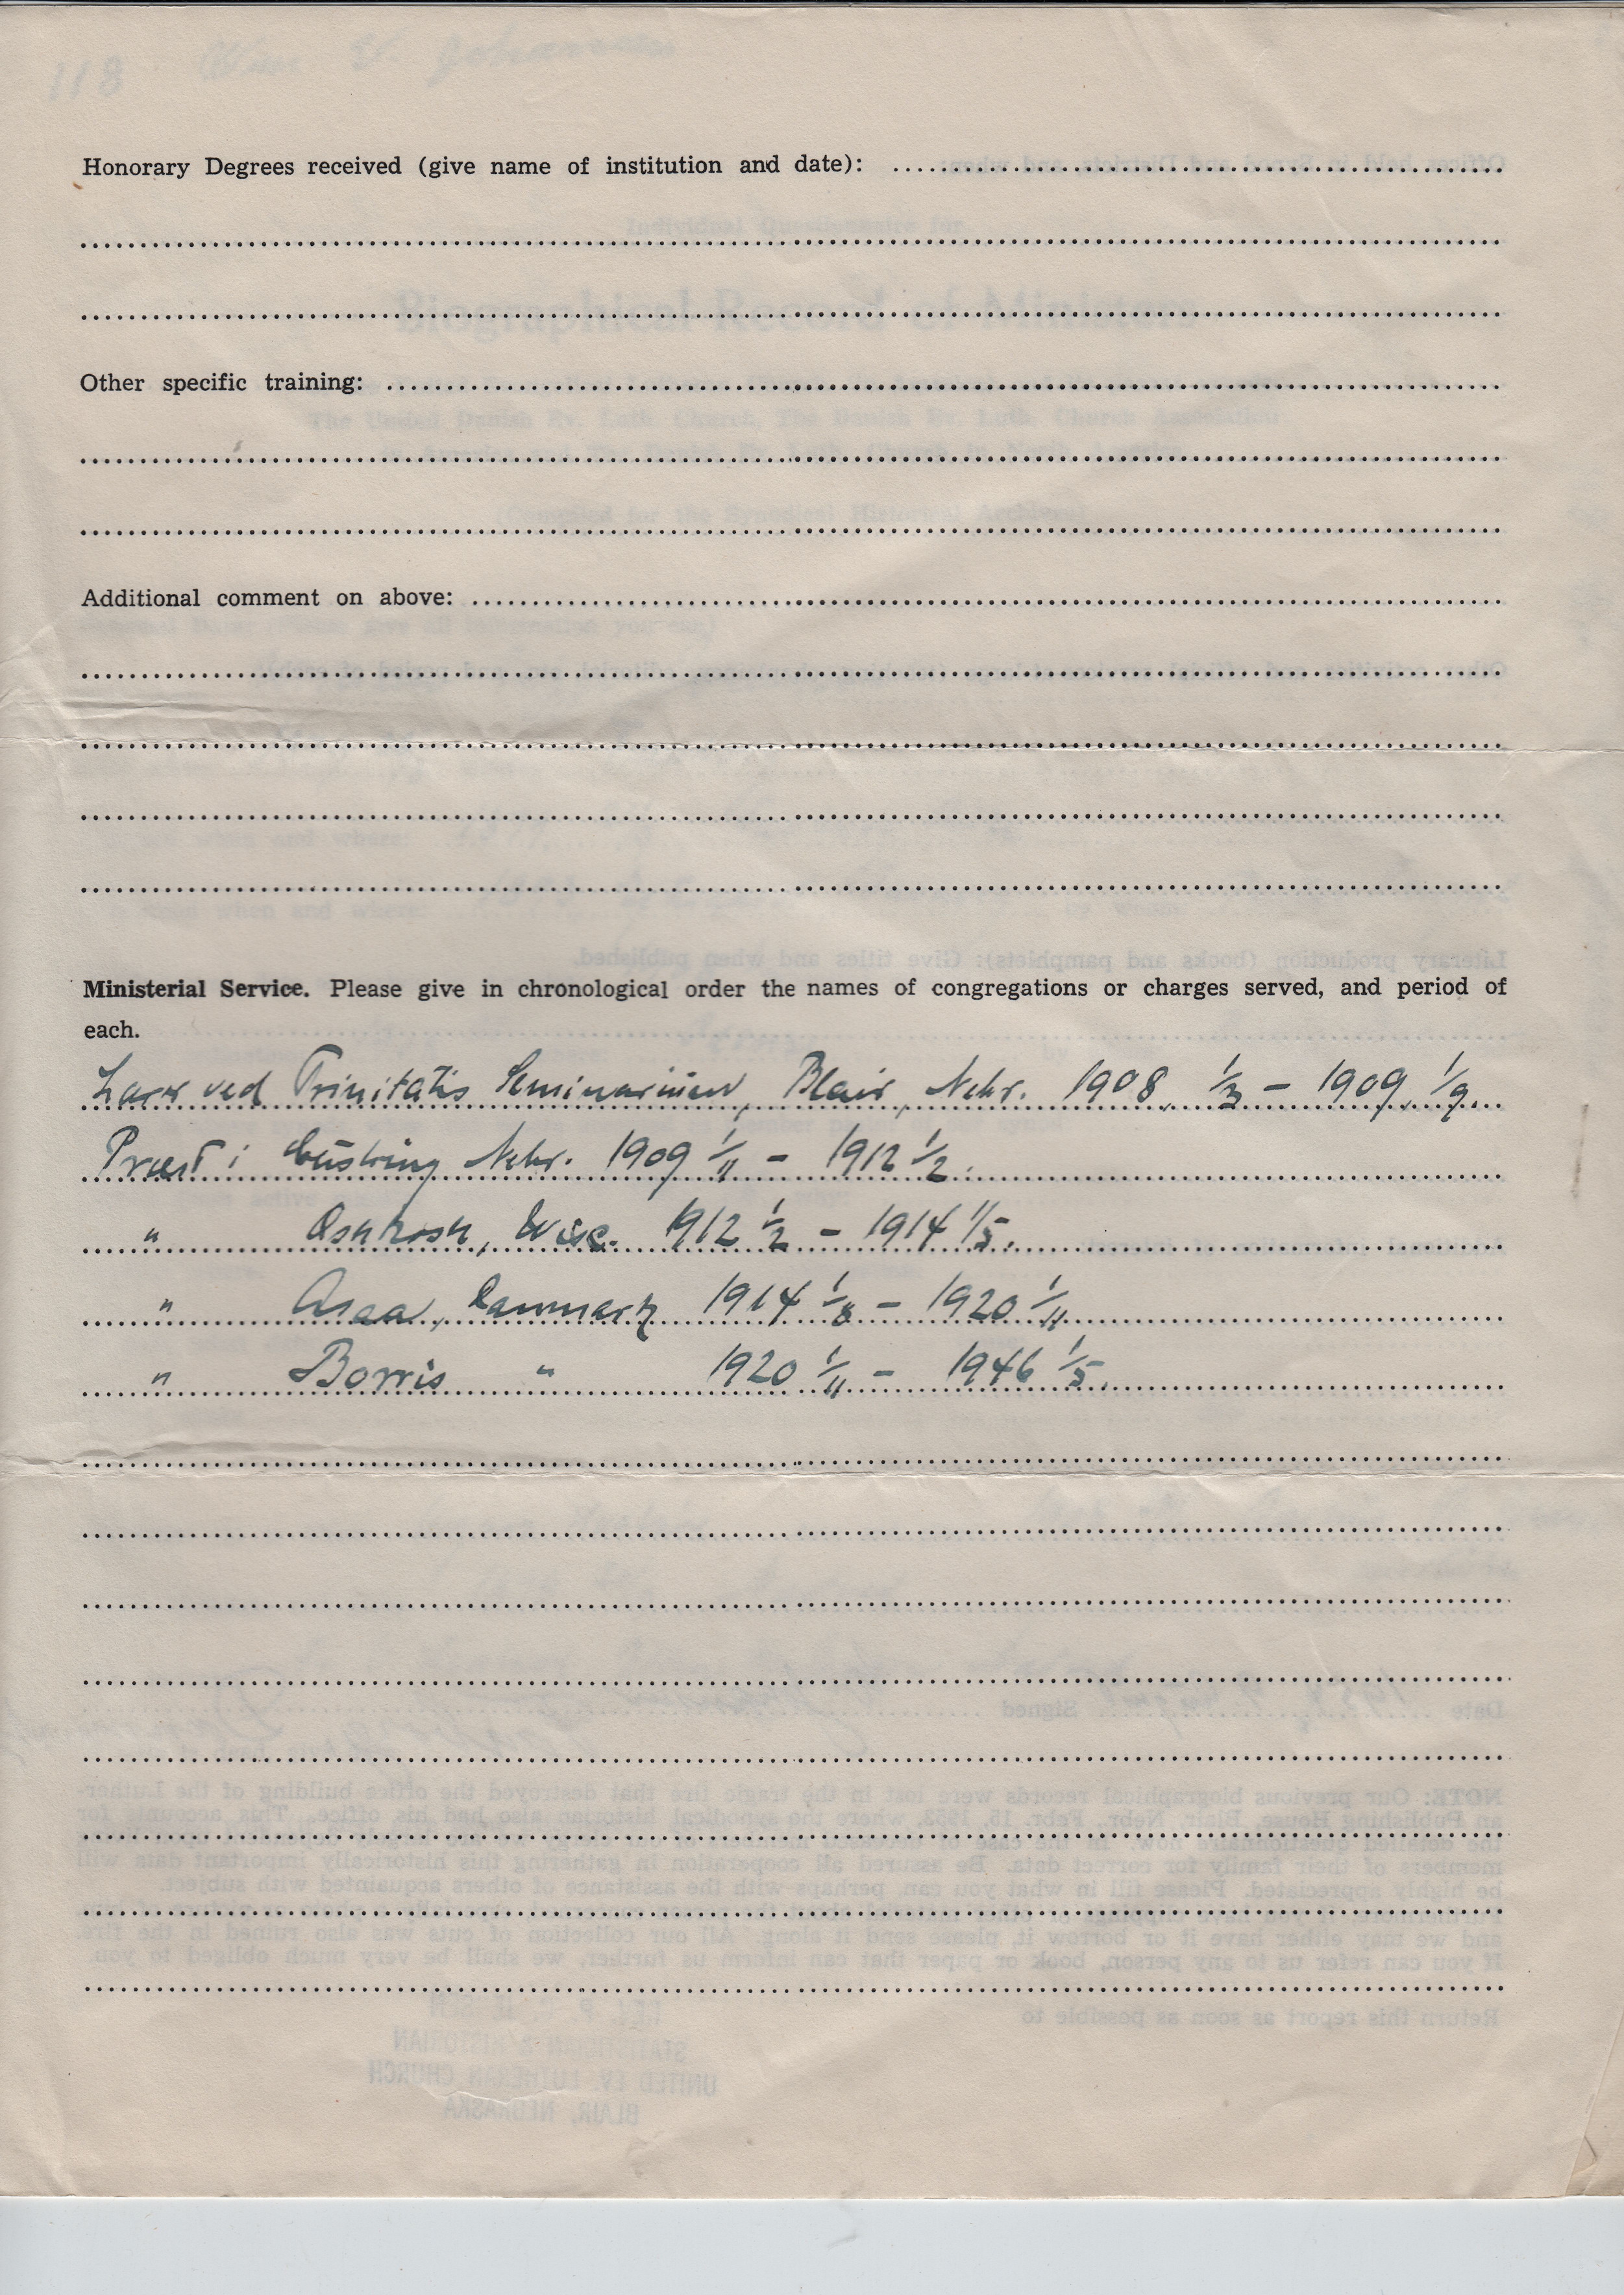 118
Honorary Degrees received (give name of institution and date):
Other specific training:
Additional comment on above:
Ministerial Service. Please give in chronological order the names of congregations or charges served, and period of
each.
Lærer ved Trinitatis Seminarium, Blair, Nebr. 1908 1/3 - 1909 1/9.
Præst i Cushing Nebr. 1909 1/11 - 1912 1/2.
" Oshkosh, Wisc. 1912 1/2 - 1914 1/5.
" Asaa, Danmark 1914 1/8 - 1920 1/11
" Borris " 1920 1/11 - 1946 1/5.